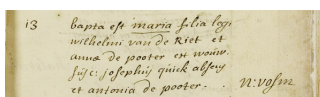 13 bapta est maria filia legi
wilhelmi van de Riet et
annæ de pooter ex wouw.
susc: josephus quick absens
et antonia de pooter. n: vosm